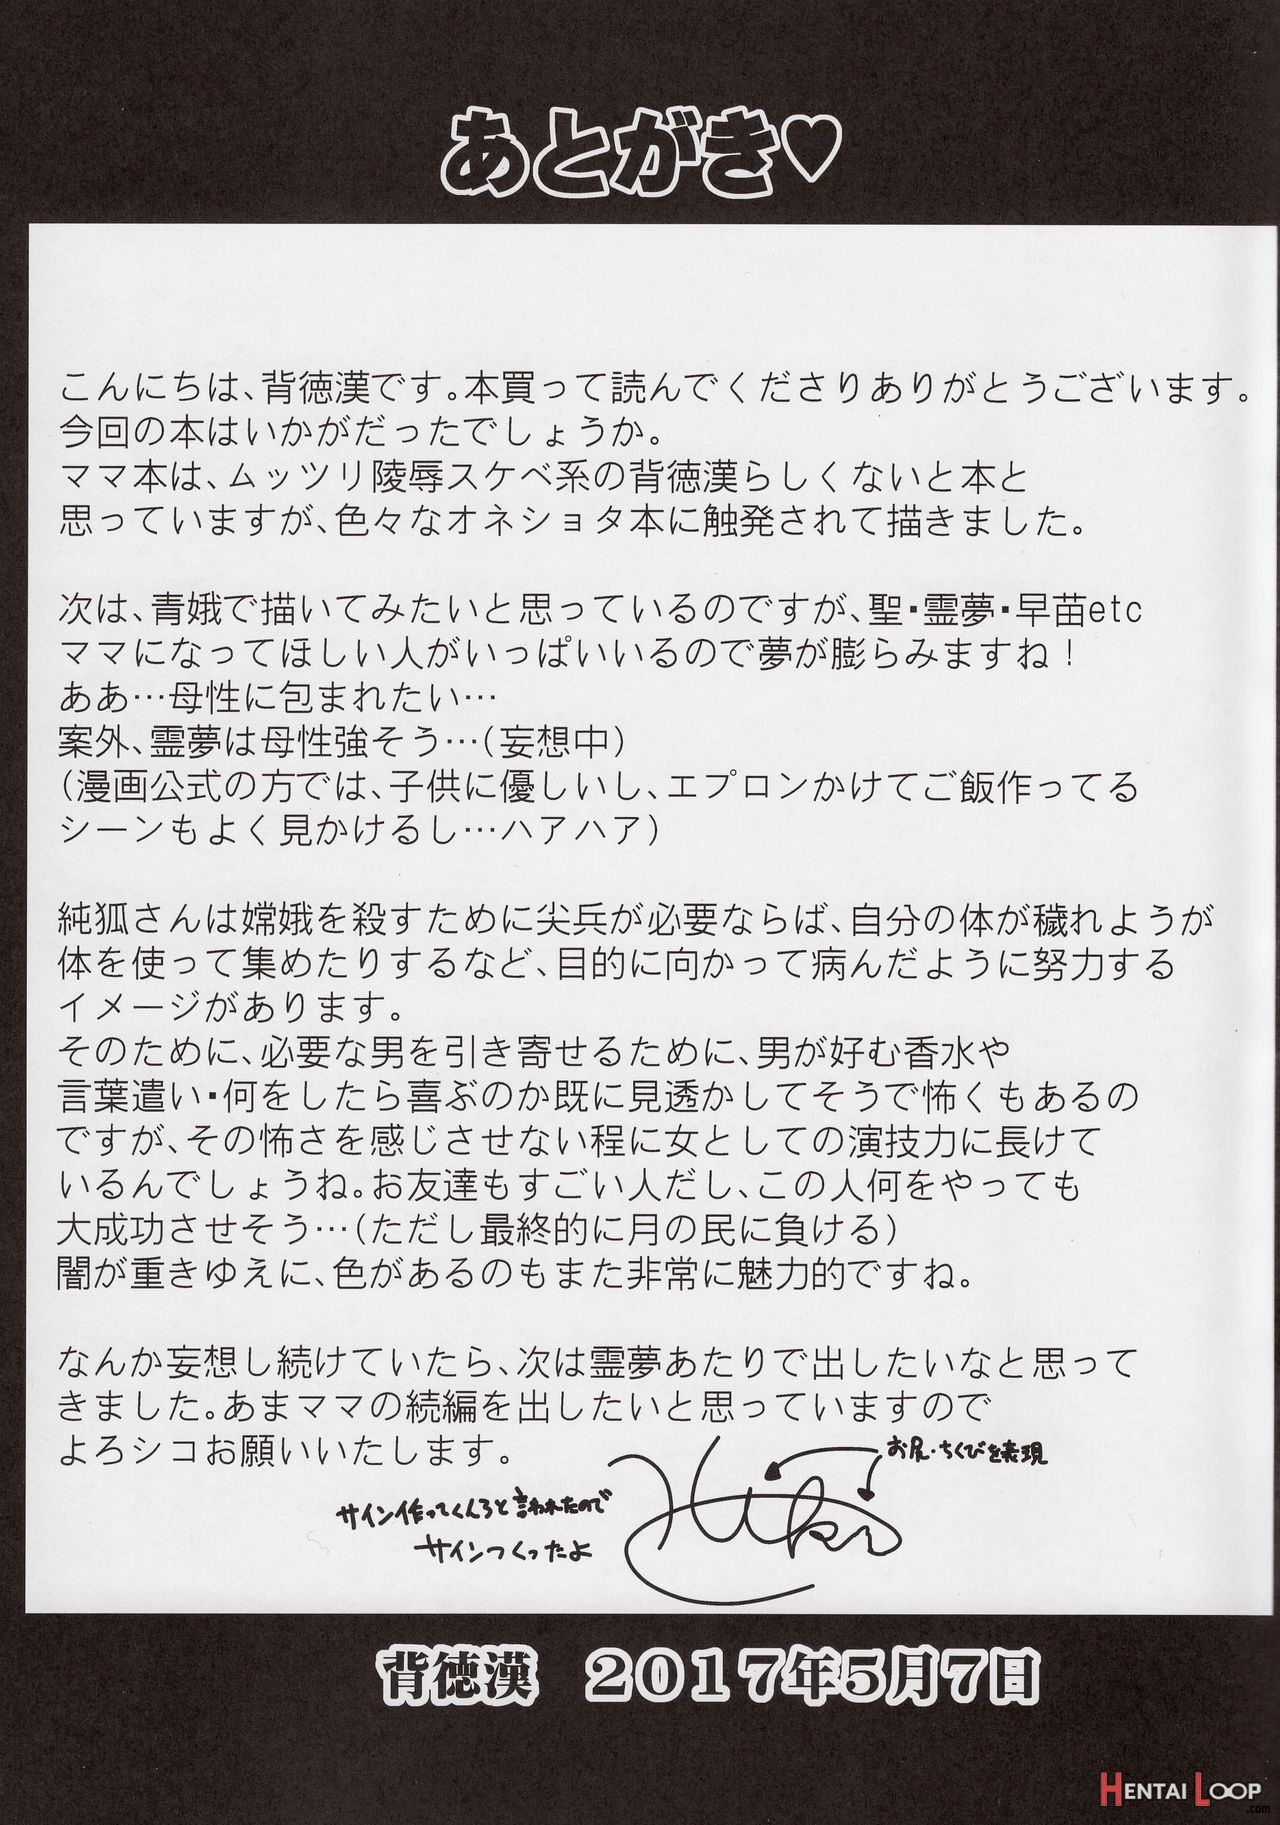 あとがき♡
こんにちは、背徳漢です。本買って読んでくださりありがとうございます。
今回の本はいかがだったでしょうか。
ママ本は、ムッツリ陵辱スケベ系の背徳漢らしくないと本と
思っていますが、色々なオネショタ本に触発されて描きました。
次は、青娥で描いてみたいと思っているのですが、聖・霊夢・早苗etc
ママになってほしい人がいっぱいいるので夢が膨らみますね！
ああ…母性に包まれたい…
案外、霊夢は母性強そう…（妄想中）
（漫画公式の方では、子供に優しいし、エプロンかけてご飯作ってる
シーンもよく見かけるし…ハアハア）
純狐さんは嫦娥を殺すために尖兵が必要ならば、自分の体が穢れようが
体を使って集めたりするなど、目的に向かって病んだように努力する
イメージがあります。
そのために、必要な男を引き寄せるために、男が好む香水や
言葉遣い・何をしたら喜ぶのか既に見透かしてそうで怖くもあるの
ですが、その怖さを感じさせない程に女としての演技力に長けて
いるんでしょうね。お友達もすごい人だし、この人何をやっても
大成功させそう…（ただし最終的に月の民に負ける）
闇が重きゆえに、色があるのもまた非常に魅力的ですね。
なんか妄想し続けていたら、次は霊夢あたりで出したいなと思って
きました。あまママの続編を出したいと思っていますので
よろシコお願いいたします。
お尻・ちくびを表現
サイン作ってくんろと言われたので
サインつくったよ
背徳漢 2017年5月7日
HENTAI LOOP
.com